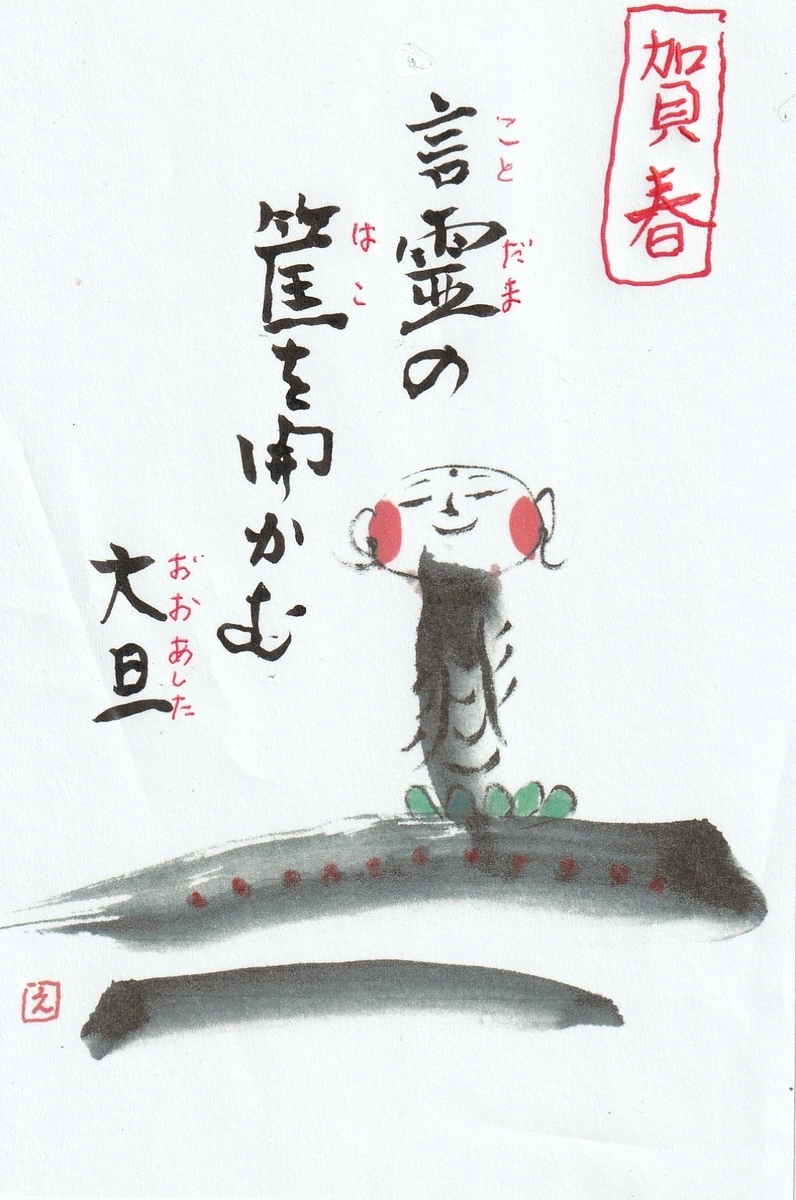 賀春
言霊の
ことだま
筐を開かむ
はこ
大旦
おおあした
え